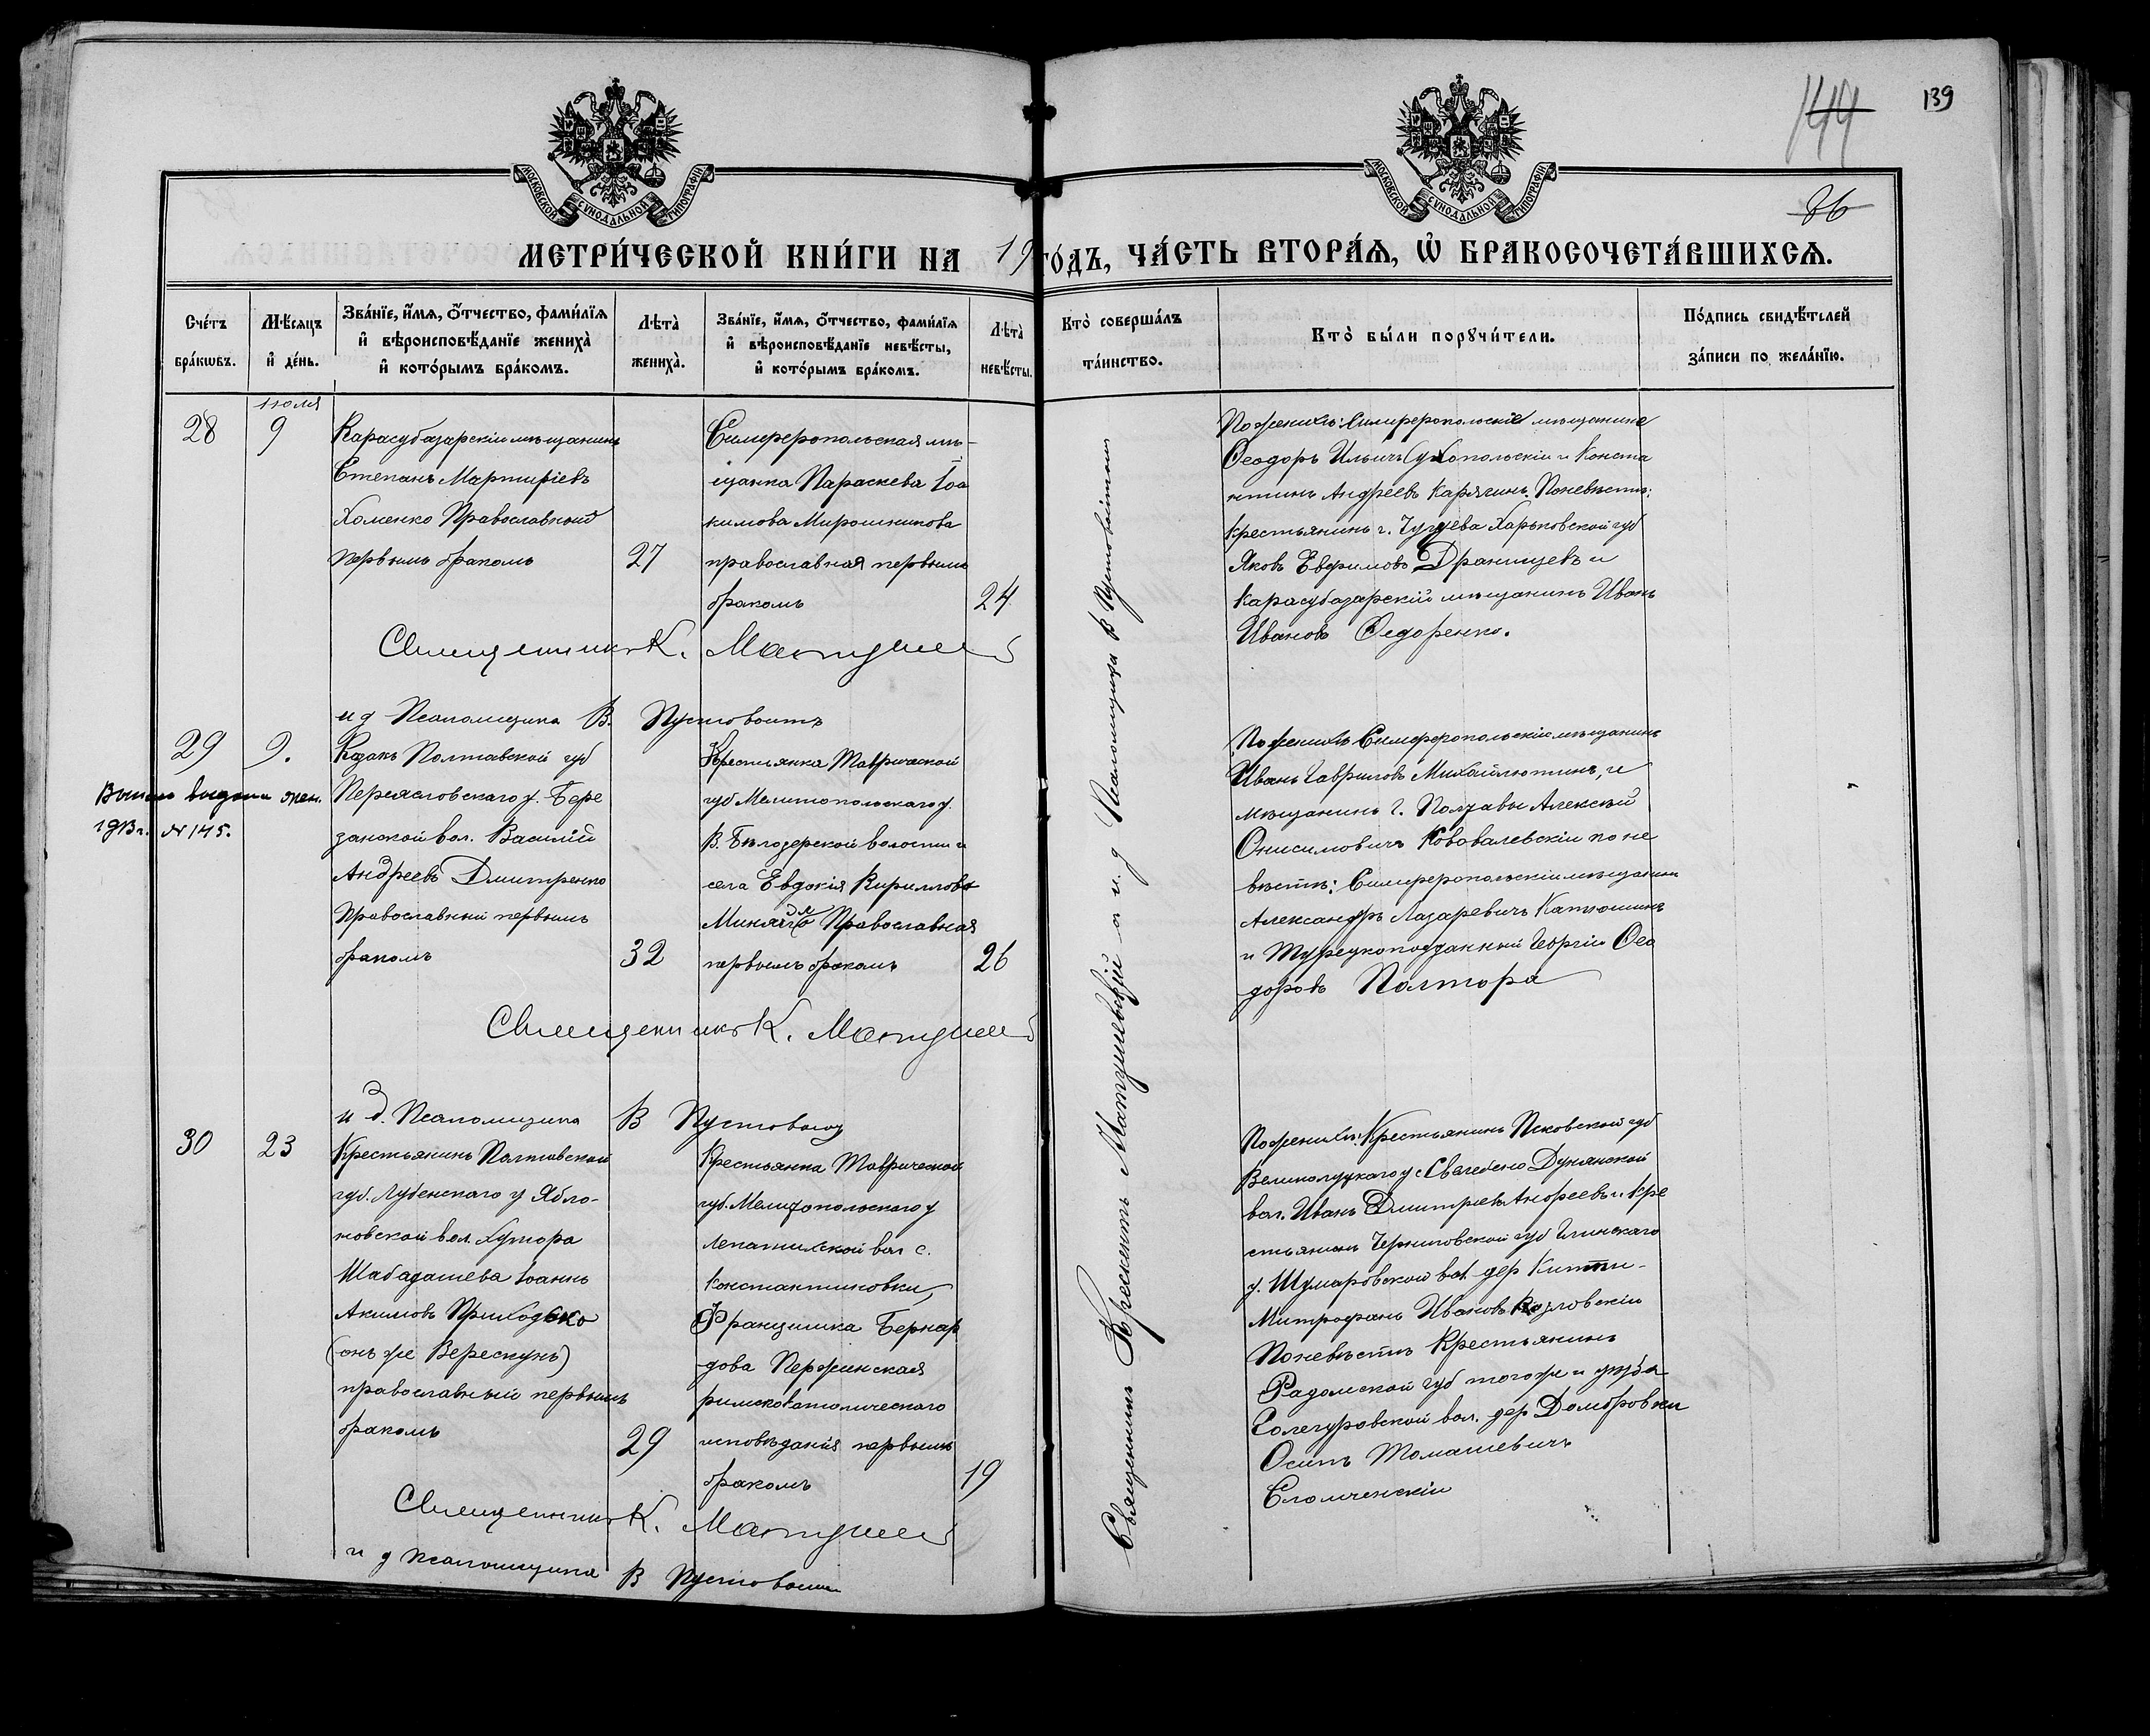 139
144
86
МОСКОВСКОЙ СѴНОДАЛЬНОЙ ТИПОГРАФІИ
МОСКОВСКОЙ СѴНОДАЛЬНОЙ ТИПОГРАФІИ
МЕТРИ́ЧЕСКОЙ КНИ́ГИ НА 19 ГО́ДЪ, ЧА́СТЬ ВТОРА́Ѧ, Ѽ БРАКОСОЧЕТА́ВШИХСѦ.
Сче́тъ бра́кωвъ.
Мѣ́сяцъ и҆ де́нь.
Зва́нїе, и҆́мя, ѻ҆́тчество, фами́лїя
и҆ вѣроисповѣ́данїе жениха̀
и҆ кото́рымъ бра́комъ.
Лѣта̀ жениха̀.
Зва́нїе, и҆́мя, ѻ҆́тчество, фами́лїя
и҆ вѣроисповѣ́данїе невѣ́сты,
и҆ кото́рымъ бра́комъ.
Лѣта̀ невѣ́сты.
Кто̀ соверша́лъ та́инство.
Кто̀ бы́ли порꙋчи́тели.
По́дпись свидѣ́телей
за́писи по жела́нїю.
28
іюля
9
Карасубазарскій мѣщанинъ
Степанъ Мартиріевъ
Хоменко Православный
первымъ бракомъ
27
Симферопольская мѣ-
щанка Параскева Іоа
кимова Мирошникова
православная первымъ
бракомъ
24
По женихѣ: Симферопольскіе мѣщанине
Ѳеодоръ Ильичъ и Конста
нтинъ Андреевъ Карягинъ. По невѣстѣ:
крестьянинъ г. Чугуева Харьковской губ
Яковъ Евфимовъ Дранищевъ и
Карасубазарскій мѣщанинъ Иванъ
Ивановъ Ѳедоренко.
Священникъ К. Матушев
и д Псаломщика В. Пустовоитъ
29
9.
Выпись выдана
1913 г. № 145.
Козакъ Полтавской губ
Переясловскаго у. Бере
занской вол. Василій
Андреевъ Дмитренко
Православный первымъ
бракомъ
32
Крестьянка Таврической
губ Мелитопольскаго у.
В. Бѣлозерской волости и
села Евдокія Кириллова
Православная
первымъ бракомъ
26
По женихѣ Симферопольскій мѣщанинъ
Иванъ Гавриловъ Михайлютинъ, и
мѣщанинъ г. Полтавы Алексѣй
Онисимовичъ Кововалевскій по не
вѣстѣ: Симферопольскій мѣщанин
Александръ Лазаревичъ Катюшинъ
и Турецкоподданный Георгій Ѳео
доровъ Полтора
Священникъ К. Матушев
и д. Псаломщика В Пустовоит
30
23
Крестьянинъ Полтавской
губ. Лубенскаго у Ябло-
новской вол. Хутора
Шабадашева Іоаннъ
Акимовъ Приходько
(онъ же Верескунъ)
православный первымъ
бракомъ
29
Крестьянка Таврической
губ. Мелитопольскаго у
Лепатихской вол с.
Константиновки,
Францишка Бернар
дова Пержинская
римскокатолическаго
исповѣданія первымъ
бракомъ
19
По женихѣ: Крестьянинъ Псковской губ
Великолуцкаго у Дунянской
вол. Иванъ Дмитріевъ Андреевъ и кре
стьянинъ Черниговской губ Глинскаго
у. Шумаровской вол дер
Митрофанъ Ивановъ Козловскій
По невѣстѣ Крестьянинъ
Радомской губ того же и уѣзда
вол. дер Домбровки
Осипъ Томашевичъ
Сломченскій
Священникъ К. Матушев
и д псаломщика В Пустовоит
Священникъ Крескентъ Матушевскій и и. д Псаломщика В Пустовойтъ